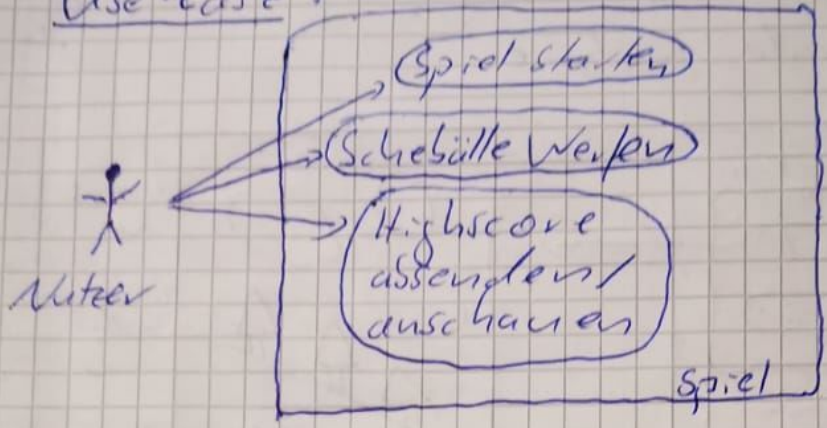 Use-Case
Spiel starten
Schebälle Werfen
Highscore
absenden/
anschauen
Nutzer
Spiel